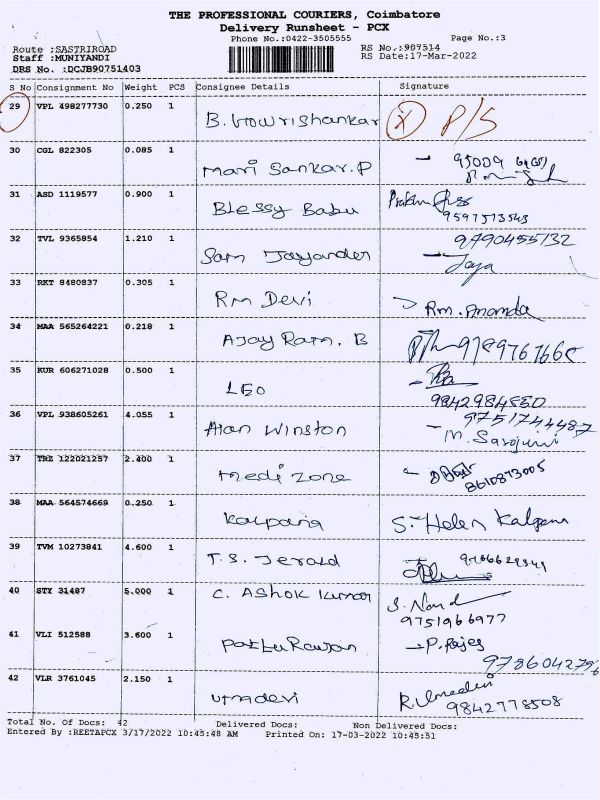 THE PROFESSIONAL COURIERS, Coimbatore
Delivery Runsheet - PCX
Phone No.:0422-3505555
Page No.:3
Route :SASTRIROAD
RS No.:907514
Staff :MUNIYANDI
RS Date:17-Mar-2022
DRS No. :DCJB90751403
S No Consignment No Weight PCS Consignee Details Signature
29 VPL 498277730 0.250 1 B. Gowrishankar X P/S
30 CGL 822305 0.085 1 Mari Sankar.P
31 ASD 1119577 0.900 1 Blessy Babu
9597573543
32 TVL 9365854 1.210 1 Sam Jayander 9790455132
Jaya
33 RKT 8480837 0.305 1 Rm Devi Rm. Ananda
34 MAA 565264221 0.218 1 Ajay Ram. B
35 KUR 606271028 0.500 1 LEO
9842984880
36 VPL 938605261 4.055 1 Alan Winston 9751744487
M. Sarojini
37 TRZ 122021257 2.400 1 medi zone
8610873005
38 MAA 564574669 0.250 1 Kalpana S. Helen Kalpana
39 TVM 10273841 4.600 1 T.S. Jerald
40 STY 31487 5.000 1 C. Ashok Kumar
9751966977
41 VLI 512588 3.600 1 P. Rajes
9786042796
42 VLR 3761045 2.150 1 umadevi R. Umadevi
9842778508
Total No. Of Docs: 42 Delivered Docs: Non Delivered Docs:
Entered By :REETAPCX 3/17/2022 10:45:48 AM Printed On: 17-03-2022 10:45:51